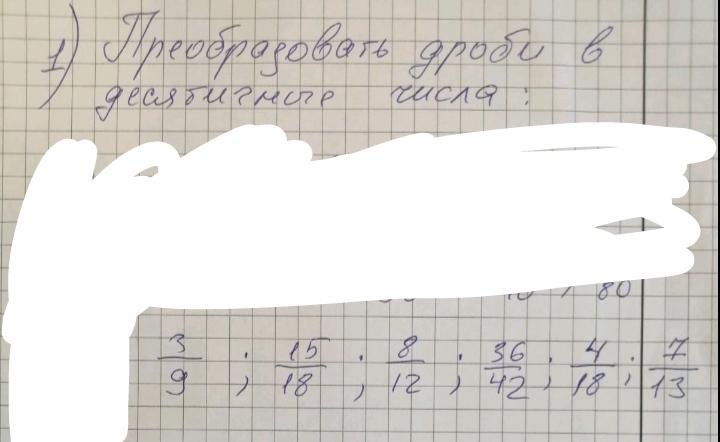 1) Преобразовать дроби в
десятичные числа:
80
3/9 ; 15/18 ; 8/12 ; 36/42 ; 4/18 ; 7/13